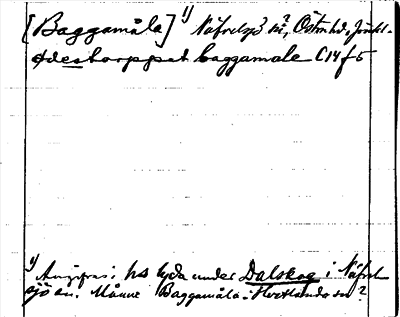 [Baggamåla] 1) Näfvelsjö sn?, Östra hd., Jönk.l.
ödestorppet baggamale C14 f 5
1) Angifves i hs lyda under Dalskog i Näfvel
sjö sn. Månne Baggamåla i Hvetlanda sn?